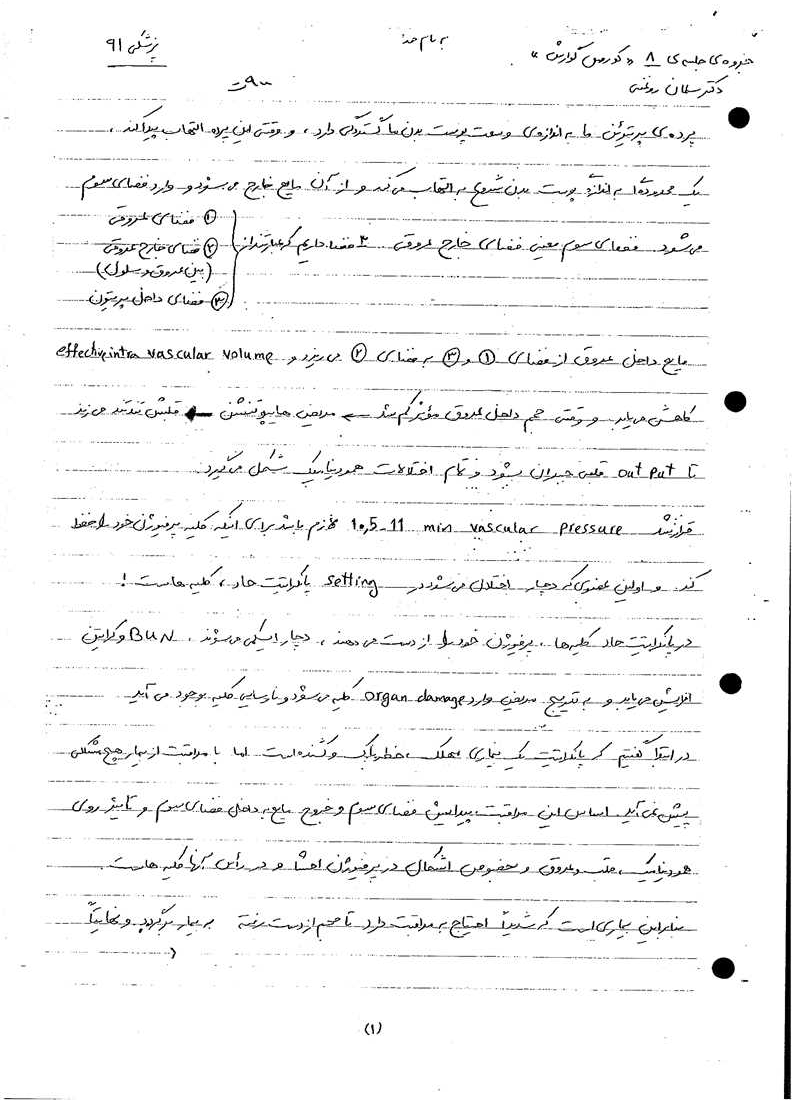 به نام خدا
جزوه ی جلسه ی ۸ «کورس گوارش»
پزشکی ۹۱
دکتر سلمان روغنی
پرده ی پریتوئن ما به اندازه ی وسعت پوست بدن ما گستردگی دارد، و وقتی این پرده التهاب پیدا کند،
یک محدوده ا به اندازه پوست بدن شروع به التهاب می کند و از آن مایع خارج می شود و وارد فضای سوم
می شود. فضای سوم یعنی فضای خارج عروقی ۳ فضا داریم که عبارتند از
① فضای عروقی
② فضای خارج عروقی
(بین عروق و سلول)
③ فضای داخل پریتون
مایع داخل عروق از فضای ① و ③ به فضای ② می ریزد و effective intra vascular volume
کاهش می یابد و وقتی حجم داخل عروق مؤثر کم شد ← مریض هایپوتنشن ← قلبش تند تند می زند
تا out put قلبی جبران بشود و تمام اختلالات همودینامیک شکل می گیرد.
قرار شد 10,5-11 min vascular pressure لازم باشد برای اینکه کلیه پرفیوژن خود را حفظ
کند. و اولین عضوی که دچار اختلال می شود در setting پانکراتیت حاد، کلیه هاست!
در پانکراتیت حاد کلیه ها، پرفیوژن خود را از دست می دهند، دچار ایسکمی می شوند، BUN و کراتین
افزایش می یابد و به تدریج مریض وارد organ damage کلیه می شود و نارسایی کلیه بوجود می آید
در ابتدا گفتیم که پانکراتیت یک بیماری مهلک، خطرناک و کشنده است اما با مراقبت از بیمار هیچ مشکلی
پیش نمی آید. اساس این مراقبت، پیدایش فضای سوم و خروج مایع به داخل فضای سوم و تأثیر روی
همودینامیک، قلب و عروق و بخصوص اشکال در پرفیوژن احشا و در رأس آنها کلیه هاست.
بنابراین بیماری است که شدیداً احتیاج به مراقبت دارد تا حجم از دست رفته به بیمار برگردد و نهایتاً
(۱)